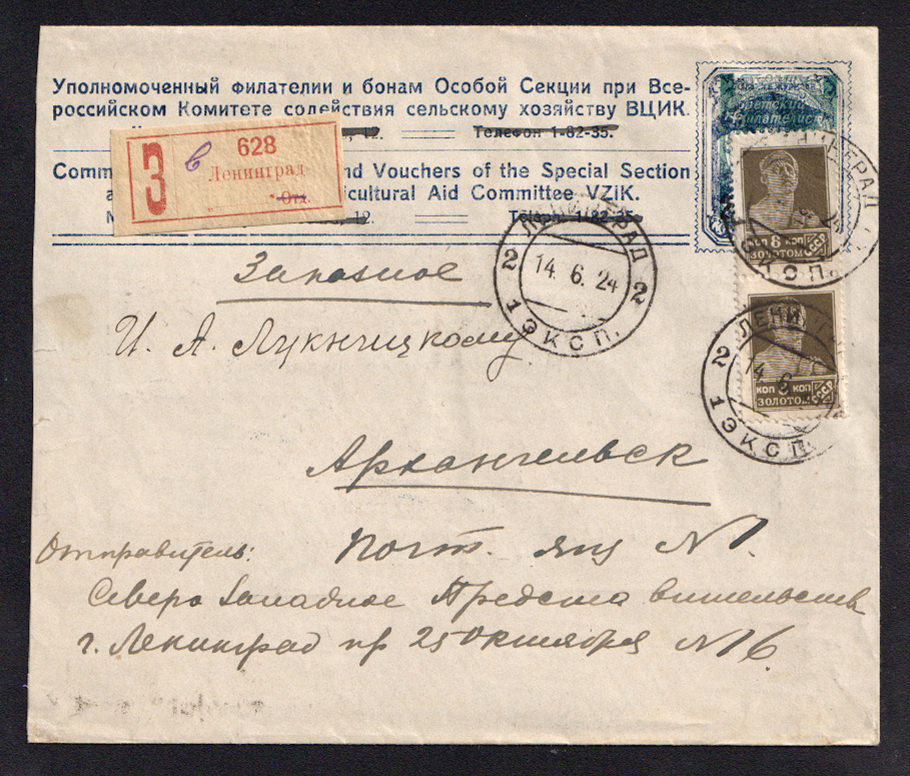 Уполномоченный филателии и бонам Особой Секции при Все-
российском Комитете содействия сельскому хозяйству ВЦИК.
12. Телефон 1-82-35.
Comm nd Vouchers of the Special Section
a icultural Aid Committee VZiK.
12. Telefon 1-82-35.
З в 628
Ленинград
Отд.
Советский
Филателист
ЛЕНИНГРАД
ЭКСП.
КОП 8 КОП
ЗОЛОТОМ СССР
Заказное
ЛЕНИНГРАД
2 14.6.24 2
1 ЭКСП.
И. А. Лукницкому
ЛЕНИНГ
2 14.6
1 ЭКСП.
КОП 8 КОП
ЗОЛОТОМ СССР
Архангельск
Отправитель: Почт. ящ N1.
Северо Западное Представительств
г. Ленинград пр 25 Октября N16